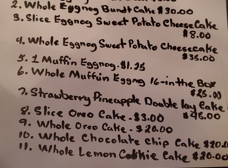 2. Whole Eggnog Bundt Cake $30.00
3. Slice Eggnog Sweet Potato CheeseCake
$8.00
4. Whole Eggnog Sweet Potato Cheesecake
$35.00
5. 1 Muffin Eggnog-$1.25
6. Whole Muffin Eggnog 16-in the Box
$25.00
7. Strawberry Pineapple Double lay Cake
$45.00
8. Slice Oreo Cake-$3.00
9. Whole Oreo Cake-$20.00
10. Whole Chocolate chip Cake $20.0
11. Whole Lemon Cookie Cake $20.00